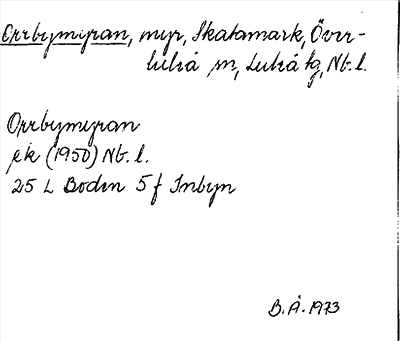 Orrbymyran, myr, Skatamark, Över-
luleå sn, Luleå tg, Nb. l.
Orrbymyran
ek (1950) Nb. l.
25 L Boden 5 f Inbyn
B.Å. 1973